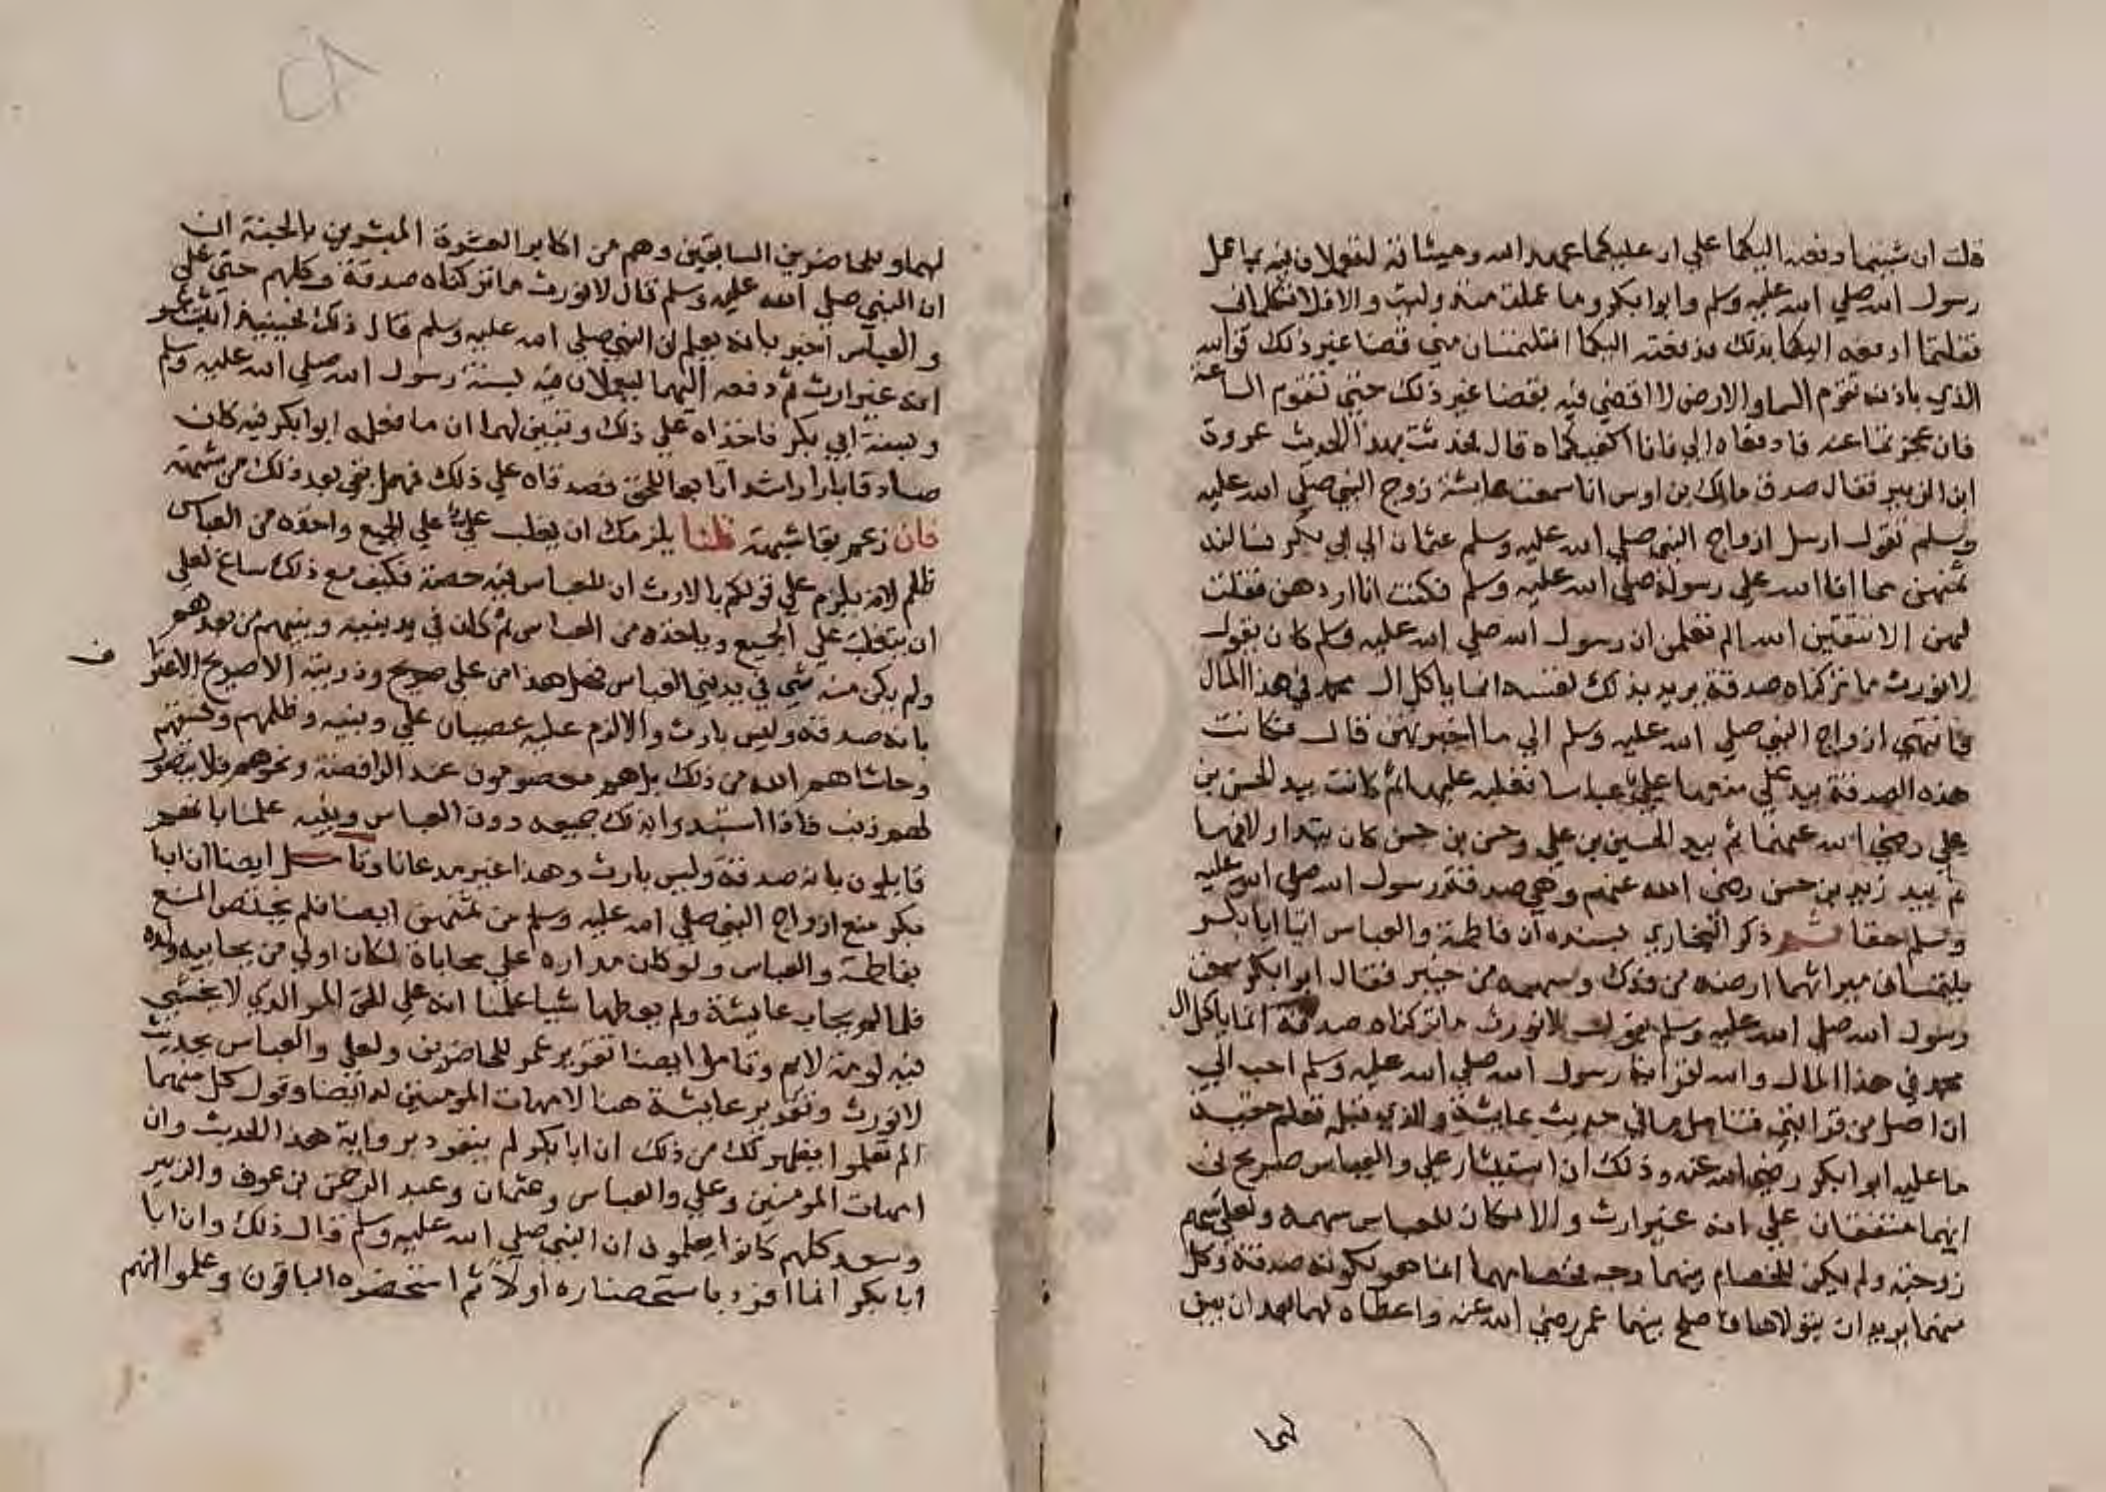 قلت ان شئتما دفعته اليكما على ان عليكما عهد الله وميثاقه لتعملان فيه بما عمل
رسول الله صلى الله عليه وسلم وابو ابكر وما عملت فيه وليت والا فلا تكلماني
فقلتما ادفعه الينا بذلك فدفعته اليكما افتلتمسان مني قضا غير ذلك فوالله
الذي باذنه تقوم السما والارض لا اقضي فيه بقضا غير ذلك حتى تقوم الساعة
فان عجزتما عنه فادفعاه الي فانا اكفيكماه قال فحدثت بهذا الحديث عروة
ابن الزبير فقال صدق مالك بن اوس انا سمعت عايشة زوج النبي صلى الله عليه
وسلم تقول ارسل ازواج النبي صلى الله عليه وسلم عثمان الى ابي بكر تسالنه
ثمنهن مما افا الله على رسوله صلى الله عليه وسلم فكنت انا اردهن فقلت
لهن الا تتقين الله الم تعلمن ان رسول الله صلى الله عليه وسلم كان يقول
لا نورث ما تركناه صدقة يريد بذلك نفسه انما ياكل ال محمد في هذا المال
فانتهى ازواج النبي صلى الله عليه وسلم الى ما اخبرتهن قال فكانت
هذه الصدقة بيد علي منعها علي عباسا فغلبه عليها ثم كانت بيد الحسن بن
علي رضي الله عنهما ثم بيد الحسين بن علي وحسن بن حسن كان يتداولانها
ثم بيد زيد بن حسن رضي الله عنهم وهي صدقة رسول الله صلى الله عليه
وسلم حقا ثم ذكر البخاري بسنده ان فاطمة والعباس اتيا ابا بكر
يلتمسان ميراثهما ارضه من فدك وسهمه من خيبر فقال ابو ابكر سمعت
رسول الله صلى الله عليه وسلم يقول لا نورث ما تركناه صدقة انما ياكل ال
محمد في هذا المال والله لقرابة رسول الله صلى الله عليه وسلم احب الي
ان اصل من قرابتي فتامل ما في حديث عايشة والذي قبله تعلم حقية
ما عليه ابو ابكر رضي الله عنه وذلك ان استيثار علي والعباس صريح في
انهما متفقان على انه غير ارث والا لكان للعباس سهمه ولعلي سهم
زوجته ولم يكن للخصام بينهما وجه فخصامهما انما هو لكونه صدقة وكل
منهما يريد ان يتولاها فاصلح بينهما عمر رضي الله عنه واعطاه لهما بعد ان بين
لهما
لهما وللحاضرين السابقين وهم من اكابر العشرة المبشرين بالجنة ان
ان النبي صلى الله عليه وسلم قال لا نورث ما تركناه صدقة وكلهم حتى علي
والعباس اخبر بانه يعلم ان النبي صلى الله عليه وسلم قال ذلك فحينيذ اثبت عمر
انه غير ارث ثم دفعه اليهما ليعملان فيه بسنة رسول الله صلى الله عليه وسلم
وبسنة ابي بكر فاخذاه على ذلك وتبين لهما ان ما فعله ابو ابكر فيه كان
صادقا بارا راشدا تابعا للحق فصدقاه على ذلك فهل بقي بعد ذلك من شبهة
فان زعم بقا شبهة قلنا يلزمك ان تغلب علي على الجميع واخذه من العباس
ظلم لانه يلزم على قولكم بالارث ان للعباس فيه حصة فكيف مع ذلك ساغ لعلي
ان يتغلب على الجميع وياخذه من العباس ثم كان في يد بنيه وبنيهم من بعدهم
ف
ولم يكن منه شي في يد بني العباس فهل هذا من علي صريح وذريته الا صريح الاعتراف
بانه صدقة وليس بارث والا لزم عليه عصيان علي وبنيه وظلمهم وفسقهم
وحاشاهم الله من ذلك بل هم معصومون عند الرافضة ونحوهم فلا يتصور
لهم ذنب فاذا استبدوا بذلك جميعه دون العباس وبنيه علمنا بانهم
قايلون بانه صدقة وليس بارث وهذا عين مدعانا وتامل ايضا ان ابا
بكر منع ازواج النبي صلى الله عليه وسلم من ثمنهن ايضا فلم يختص المنع
بفاطمة والعباس ولو كان مداره على محاباة لكان اولى من يحابيه ولده
فلما لم يحاب عايشة ولم يعطها شيا علمنا انه على الحق المر الذي لا يخشى
فيه لومة لايم وتامل ايضا تقرير عمر للحاضرين ولعلي والعباس بحديث
لا نورث وتقرير عايشة هنا لامهات المومنين له ايضا وقول كل منهما
الم تعلموا يظهر لك من ذلك ان ابا بكر لم ينفرد برواية هذا الحديث وان
امهات المومنين وعلي والعباس وعثمان وعبد الرحمن بن عوف والزبير
وسعد كلهم كانوا يعلمون ان النبي صلى الله عليه وسلم قال ذلك وان ابا
ابا بكر انما انفرد باستحضاره اولا ثم استحضره الباقون وعلموا انهم